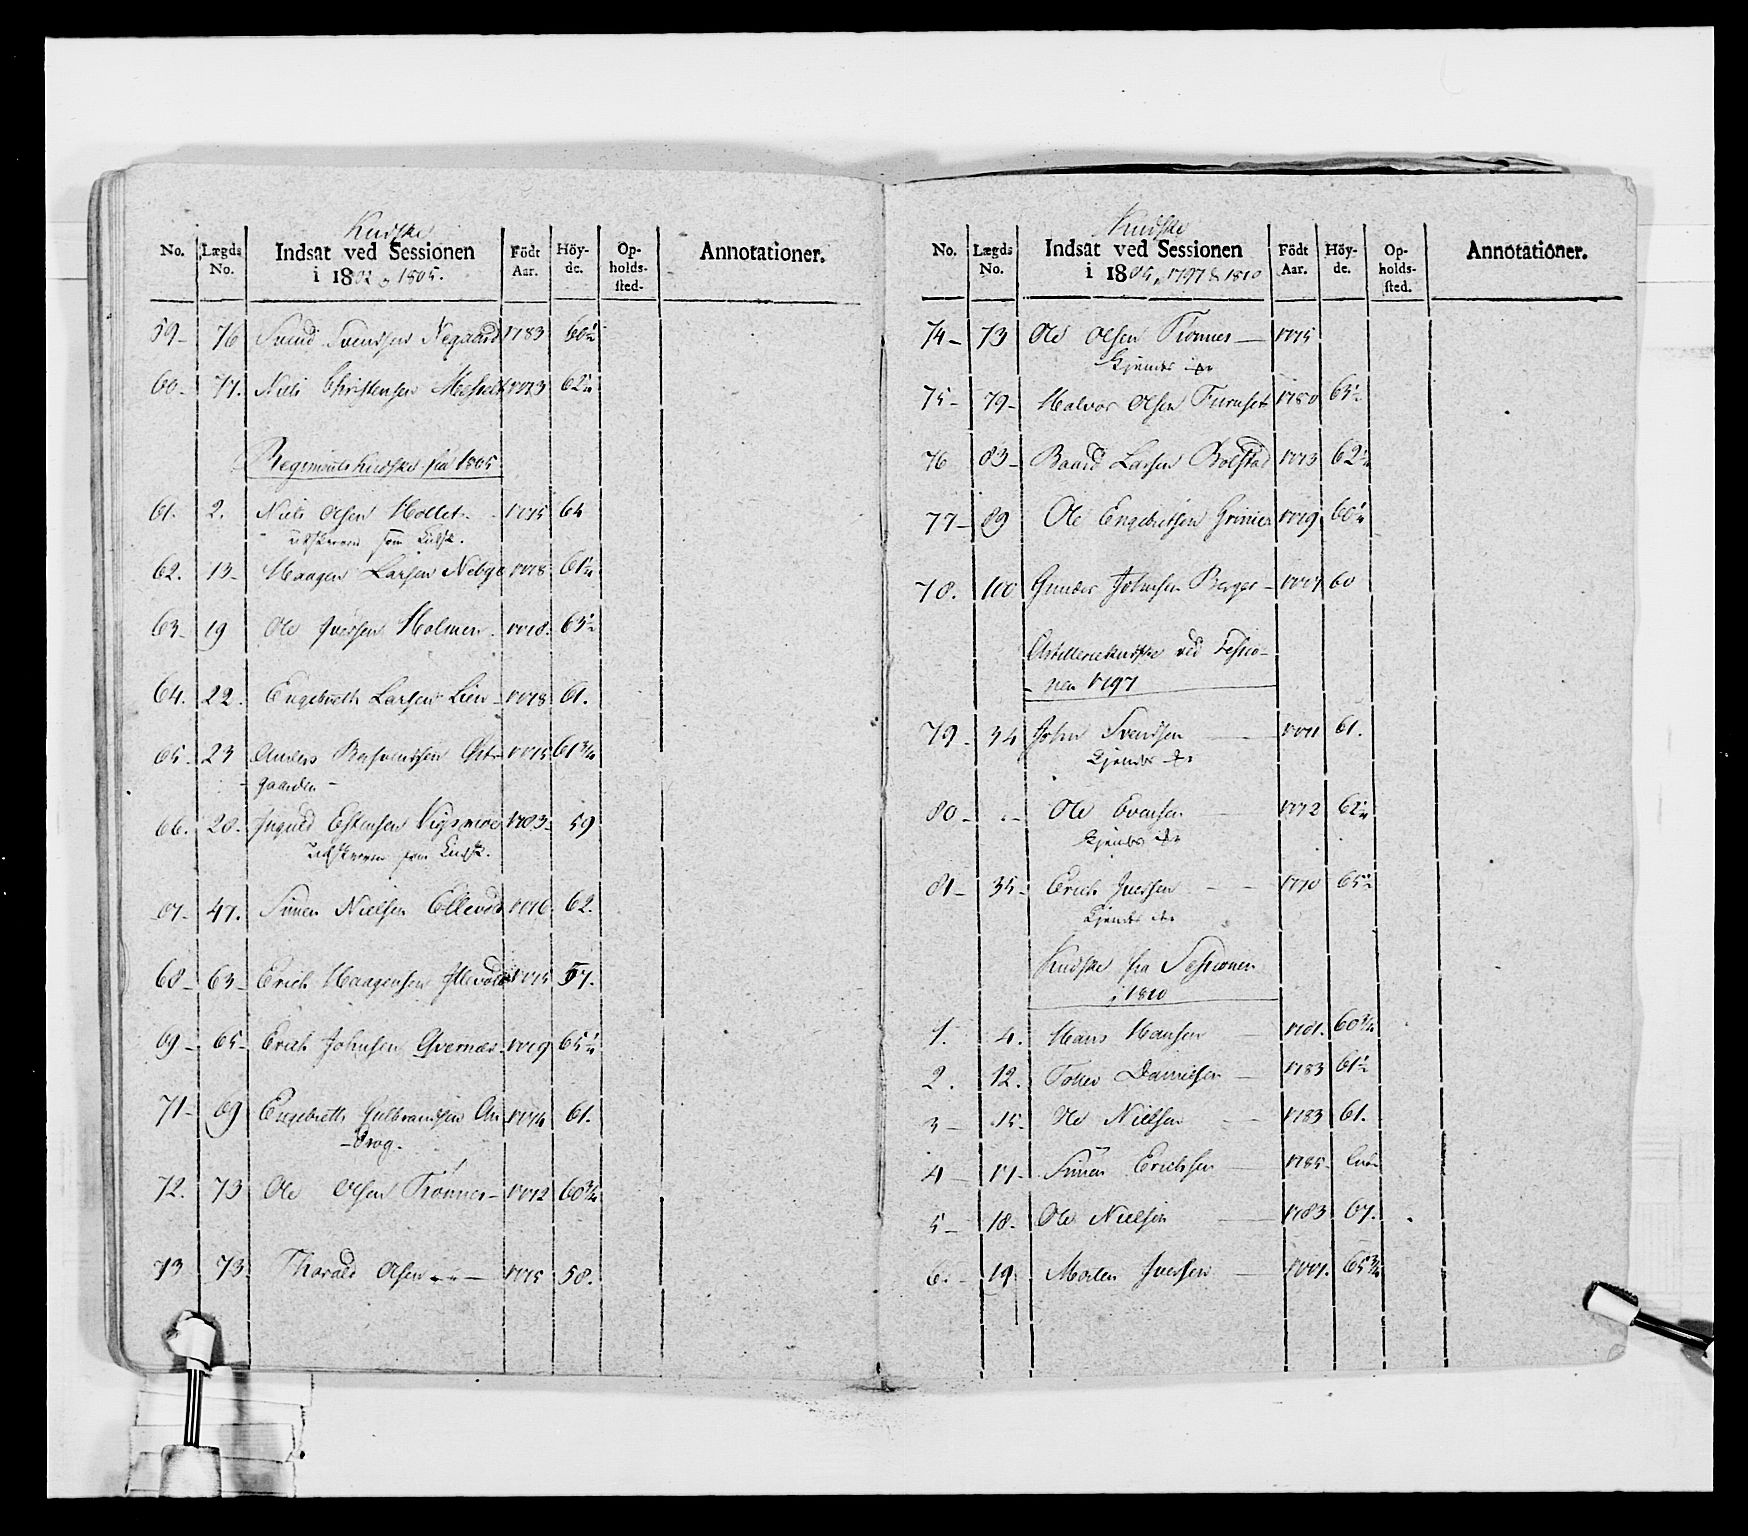 Kudske
No. Lægds No. Indsat ved Sessionen i 1802 & 1805. Födt Aar. Höyde. Opholdssted. Annotationer.
59- 76 Svend Svendsen Negaard 1783 60½
60- 77. Niels Christensen 1773 62¼
Regiments Kudske fra 1805
61. 2. Niels Olsen Mollet 1775 64
som Kudsk.
62. 13- Haagen Larsen 1778 61¼
63- 19 Ole Iversen Holmen 1778. 63½
64. 22. Engebreth Larsen Lien 1778 61.
65- 23 Anders 1775 61¾
gaarden
66. 28- Estensen 1783- 59
som Kudsk.
67- 47. Simen Nielsen 1776 62.
68- 63- Erich Haagensen 1775 57.
69- 65- Erich Johnsen Qvernæs 1779 65¼
71- 69 Engebreth Gulbrandsen 1774 61.
72. 73 Ole Olsen Trønnes 1772 60¾
73 73. Thorald Olsen 1775 58.
Kudske
No. Lægds No. Indsat ved Sessionen i 1805, 1797 & 1810 Födt Aar. Höyde. Opholdssted. Annotationer.
74- 73 Ole Olsen Trønnes 1775
75- 79- Halvor Olsen Furuset 1780 63½
76 83- Baard Larsen Bolstad 1773 62¼
77- 89 Ole Engebretsen 1779 60¼
78. 100 Gunder Johnsen Berger 1777 60
Artilleriekudske ved Sessio-
nen 1797
79- 34 John Svendsen 1771 61.
80- " Ole Evensen 1772 62¼
81- 35- Erich Iversen 1770 65½
Kudske fra Sessionen
i 1810
1. 4. Hans Hansen 1781. 60¾
2. 12. Tollev Danielsen 1783 61½
3- 15- Ole Nielsen 1783 61.
4- 17- Simen Erichsen 1785-
5- 18. Ole Nielsen 1783 67.
6.- 19 Morten Iversen 1777. 65¾